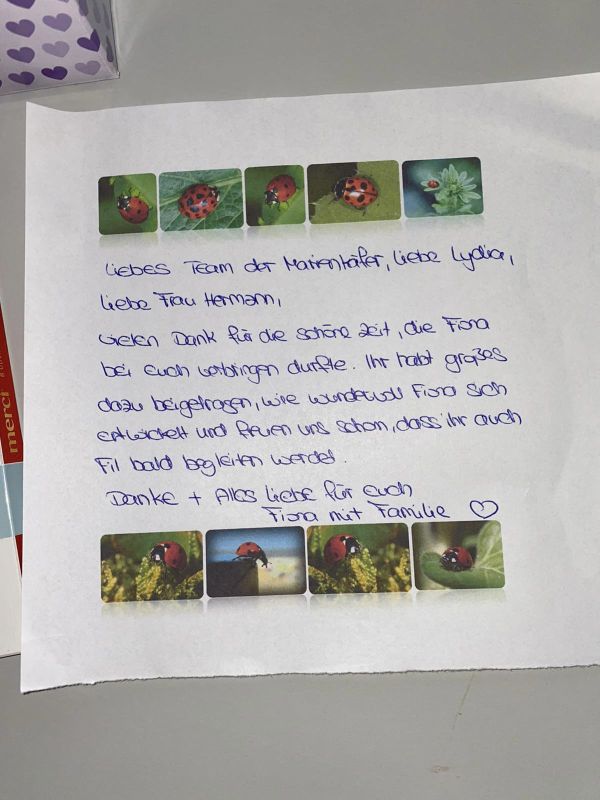 Liebes Team der Marienkäfer, liebe Lydia,
liebe Frau Hermann,
vielen Dank für die schöne Zeit, die Fiona
bei Euch verbringen durfte. Ihr habt großes
dazu beigetragen, wie wundervoll Fiona sich
entwickelt und freuen uns schon, dass ihr auch
Fil bald begleiten werdet.
Danke + Alles liebe für euch
Fiona mit Familie
merci